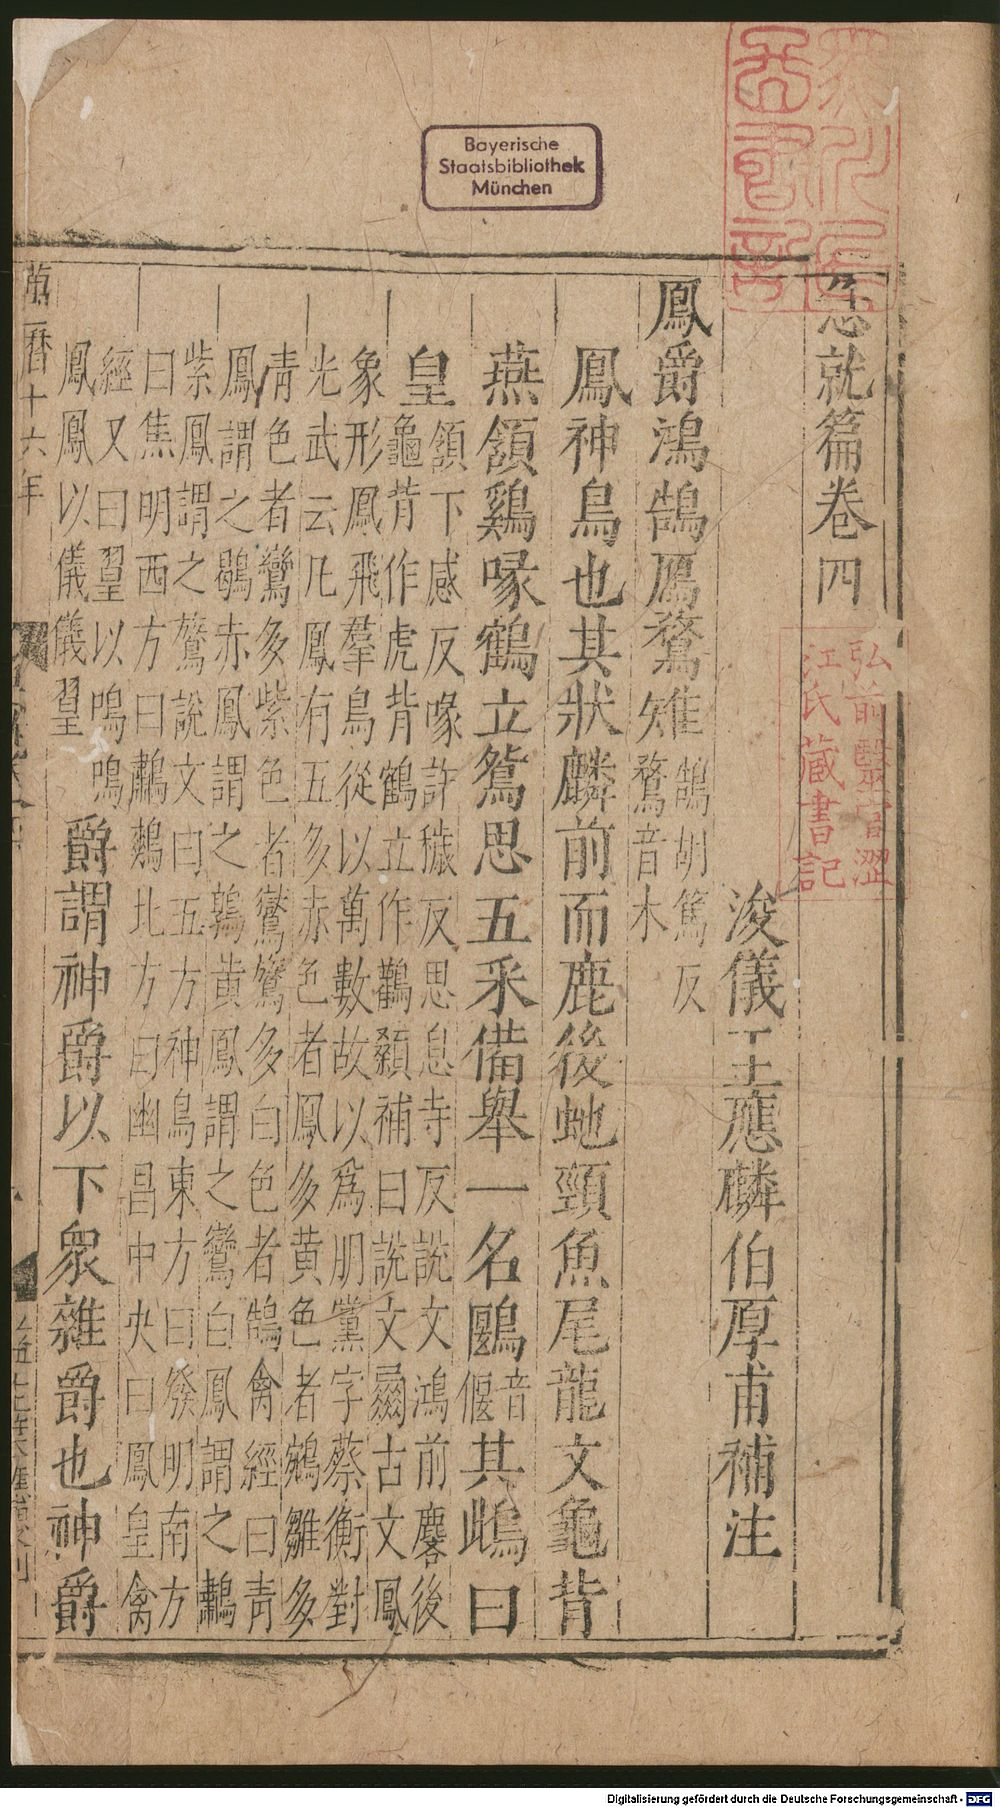 Bayerische
Staatsbibliothek
München
急就篇卷四
弘前醫官澀
江氏藏書記
浚儀王應麟伯厚甫補注
鳳爵鴻鵠鴈鶩雉
鵠胡篤反
鶩音木
鳳神鳥也其狀麟前而鹿後虵頸魚尾龍文龜背
燕頷鷄喙鶴立鴛思五采備舉一名鶠
音
偃
其鴫曰
皇
頷下感反喙許穢反思息寺反說文鴻前麐後
龜背作虎背鶴立作鸛顙補曰說文𦐖古文鳳
象形鳳飛羣鳥從以萬數故以爲朋黨字蔡衡對
光武云凡鳳有五多赤色者鳳多黄色者鵷雛多
青色者鸞多紫色者鸑鷟多白色者鵠禽經曰青
鳳謂之鶡赤鳳謂之鶉黄鳳謂之鸞白鳳謂之鷫
紫鳳謂之鷟說文曰五方神鳥東方曰發明南方
曰焦明西方曰鷫鷞北方曰幽昌中央曰鳳皇禽
經又曰翌以鳴鳴
鳳鳳以儀儀翌
爵謂神爵以下衆雜爵也神爵
萬曆十六年
Digitalisierung gefördert durch die Deutsche Forschungsgemeinschaft - DFG